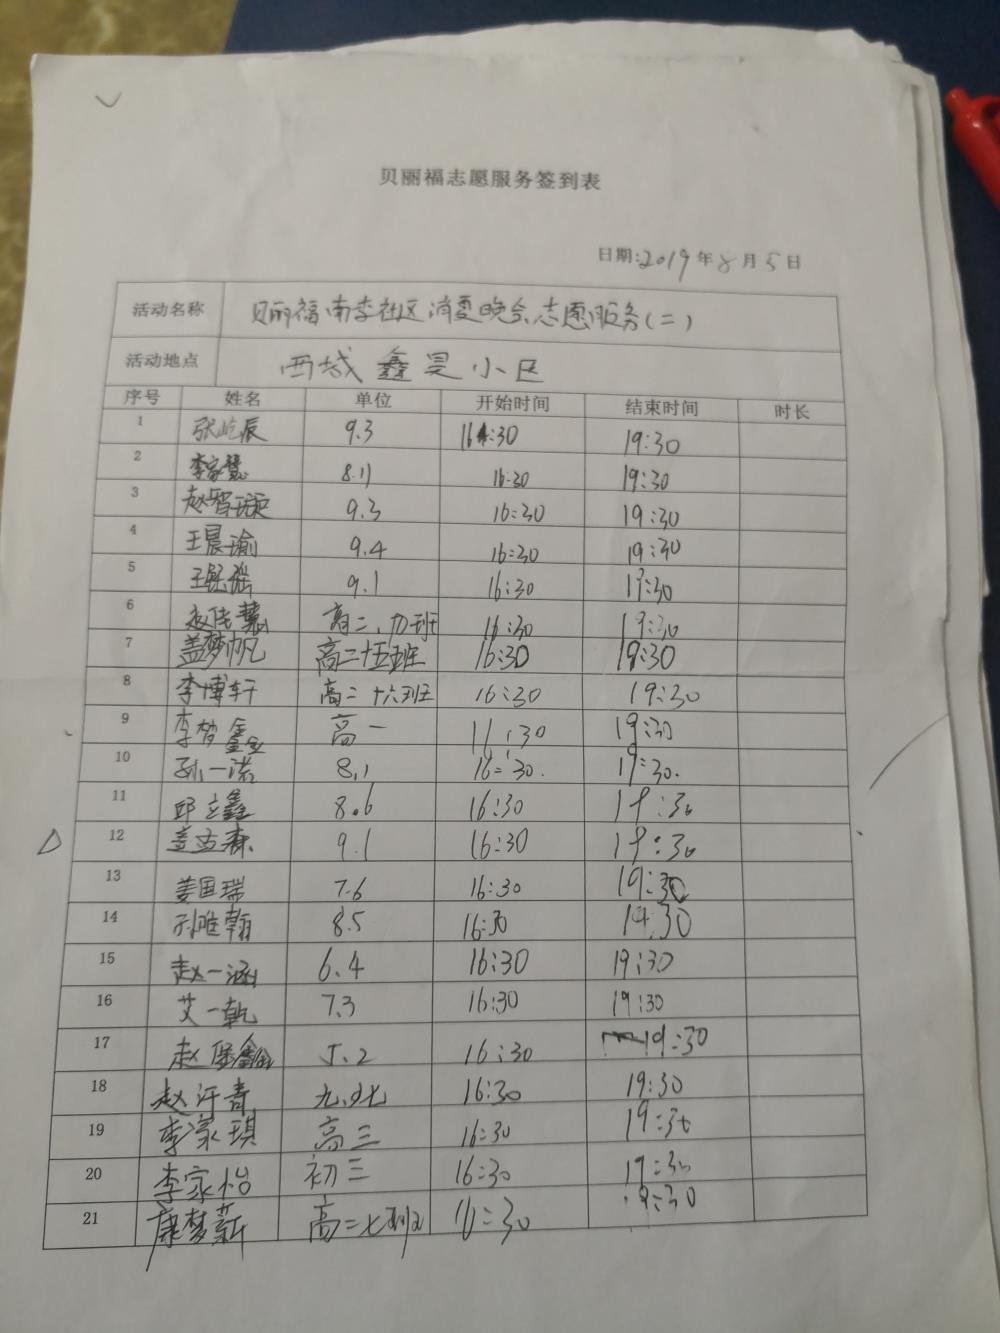 贝丽福志愿服务签到表
日期:2019年8月5日
活动名称 贝丽福南李社区消夏晚会志愿服务(二)
活动地点 西城鑫昊小区
序号 姓名 单位 开始时间 结束时间 时长
1 张屹辰 9.3 16:30 19:30
2 李家慧 8.11 16:30 19:30
3 赵智璇 9.3 16:30 19:30
4 王晨瑜 9.4 16:30 19:30
5 王 瑶 9.1 16:30 19:30
6 赵佳慧 高二. 班 16:30 19:30
7 盖梦帆 高二十五班 16:30 19:30
8 李博轩 高二十六班 16:30 19:30
9 李梦鑫 高一 16:30 19:30
10 孙一诺 8.1 16:30. 19:30.
11 邱立鑫 8.6 16:30 19:30
12 盖孟森 9.1 16:30 19:30
13 姜国瑞 7.6 16:30 19:30
14 孙唯翰 8.5 16:30 19:30
15 赵一涵 6.4 16:30 19:30
16 艾一乾 7.3 16:30 19:30
17 赵堡鑫 5.2 16:30 19:30
18 赵汗青 九. 16:30 19:30
19 李家琪 高三 16:30 19:30
20 李家怡 初三 16:30 19:30
21 康梦薪 高二七班 16:30 19:30